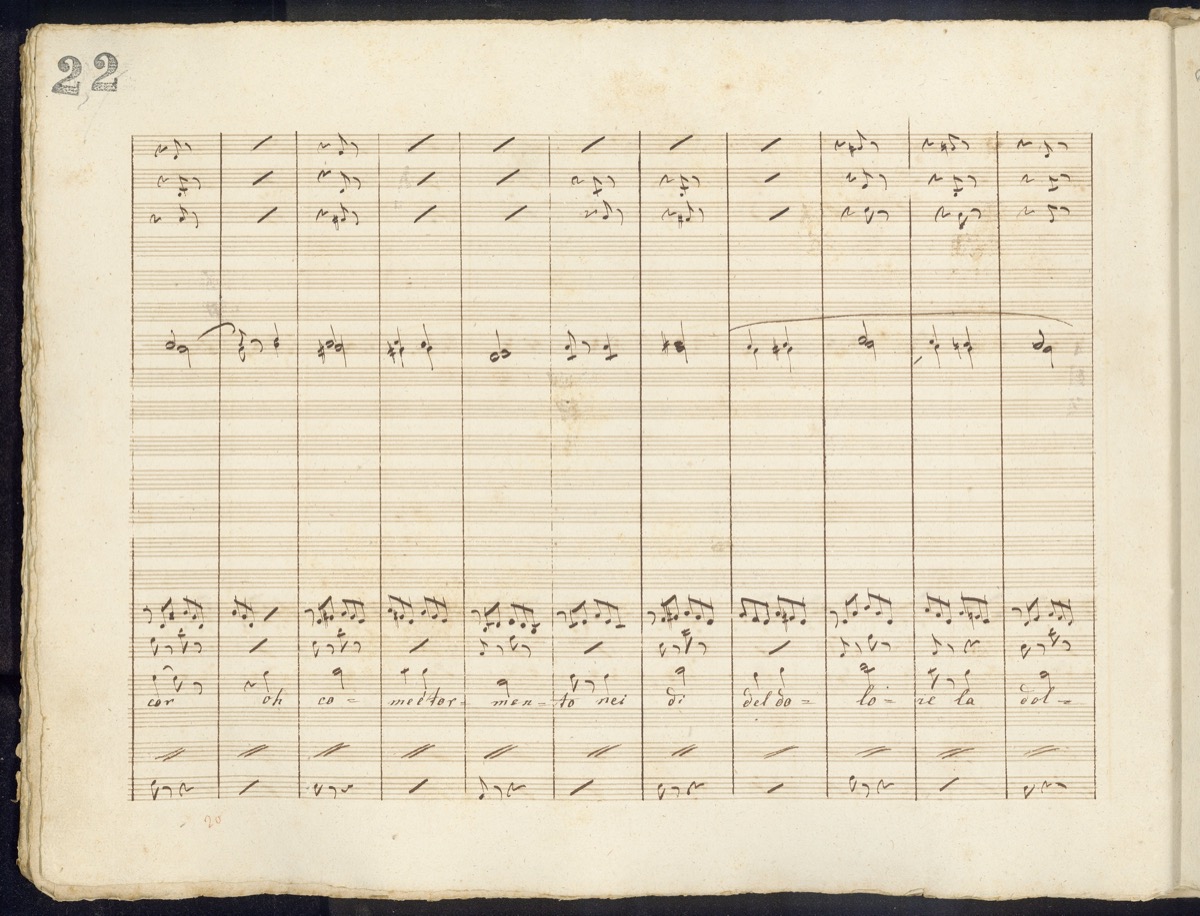 22
cor oh co= me e tor= men= to nei di del do= lo= re la dol=
20